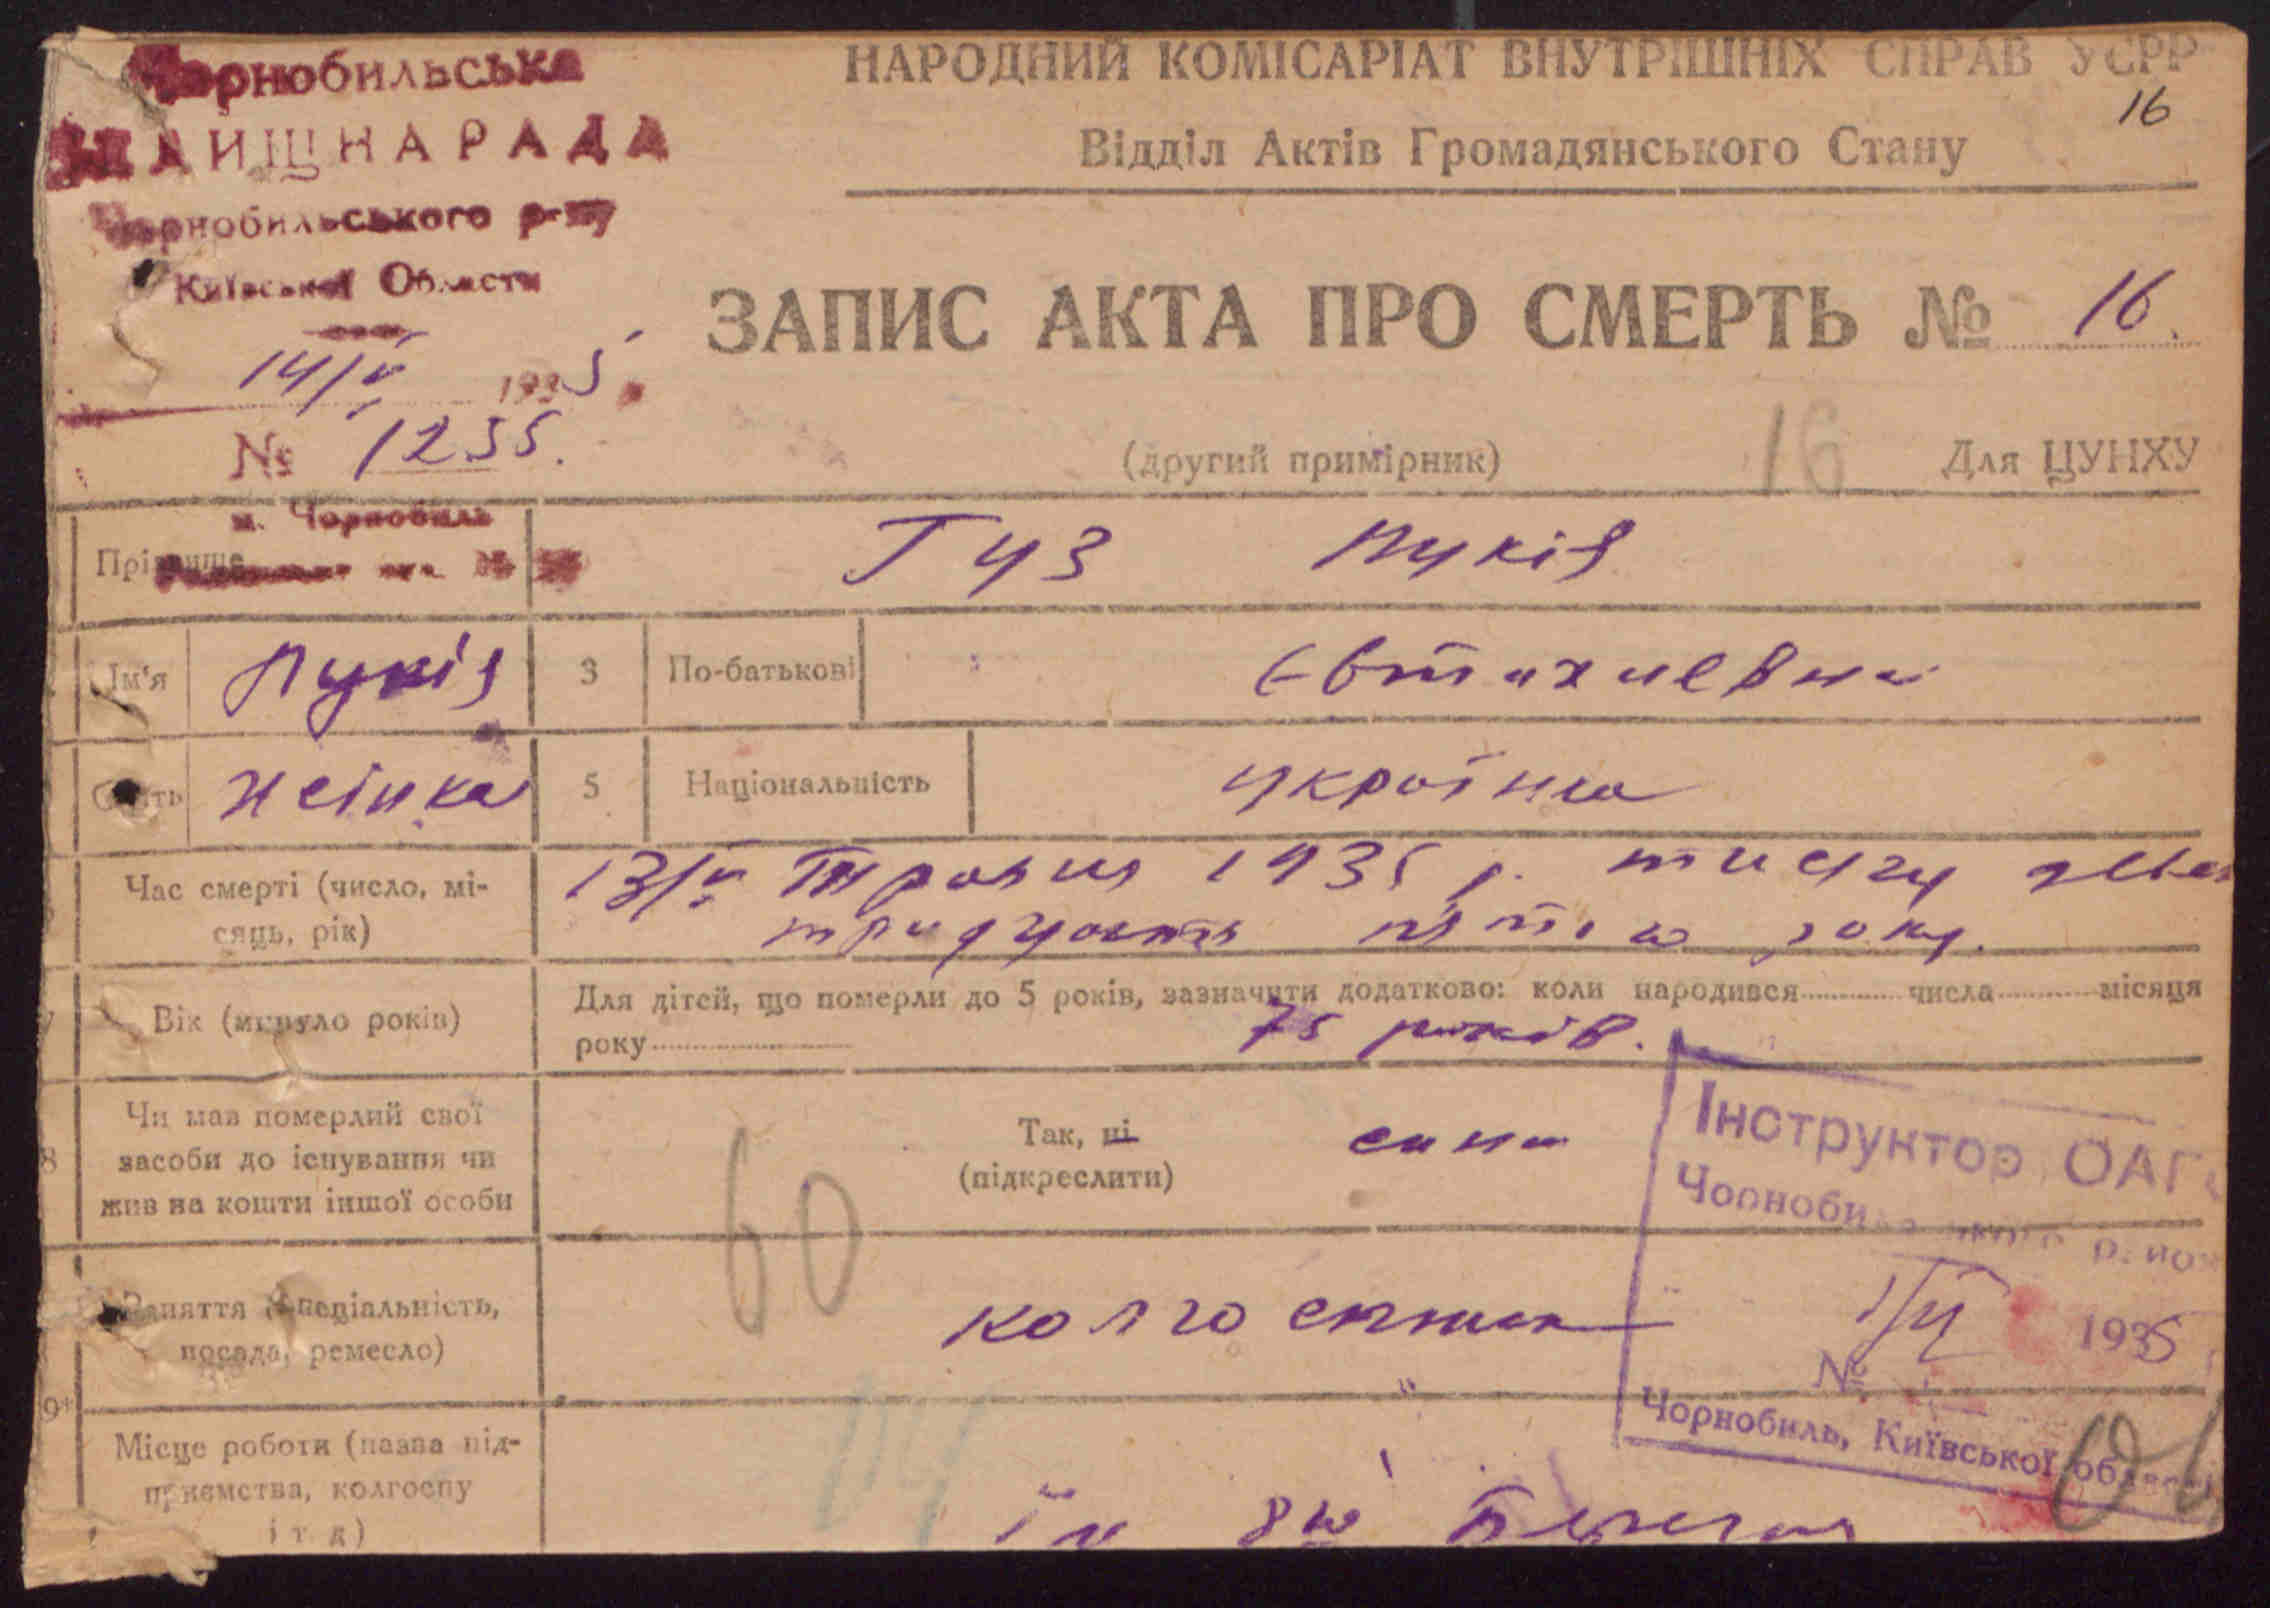 Чорнобильська
НАРОДНИЙ КОМІСАРІАТ ВНУТРІШНІХ СПРАВ УСРР
16
РАДА
Відділ Актів Громадянського Стану
Чорнобильського р-ну
Київської Области
ЗАПИС АКТА ПРО СМЕРТЬ № 16.
14/V 1935
№ 1235.
(другий примірник) 16 Для ЦУНХУ
м. Чорнобиль
Прізвище Гуз Лукія
Ім'я Лукія 3 По-батькові Євтихиевна
Стать жінка 5 Національність українка
Час смерті (число, мі-
сяць, рік)
13/V Травня 1935 р. тисячу
тридцять п'ятого року.
7 Вік (минуло років)
Для дітей, що померли до 5 років, зазначити додатково: коли народився числа місяця
року 75 років.
8 Чи мав померлий свої
засоби до існування чи
жив на кошти іншої особи
Так, ні
(підкреслити)
сина
60
Інструктор ОАГС
Заняття (спеціальність,
посада, ремесло)
колгоспник
1935
№
Чорнобиль, Київської області
9 Місце роботи (назва під-
приємства, колгоспу
і т д)